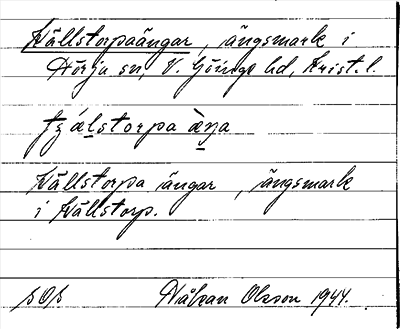 Källstorpaängar, ängsmark i
Nörja sn, V. Göinge hd, Krist. l.
tʒálstorpa àŋa
Källstorpa ängar, ängsmark
i Källstorp.
sOs Håkan Olsson 1944.